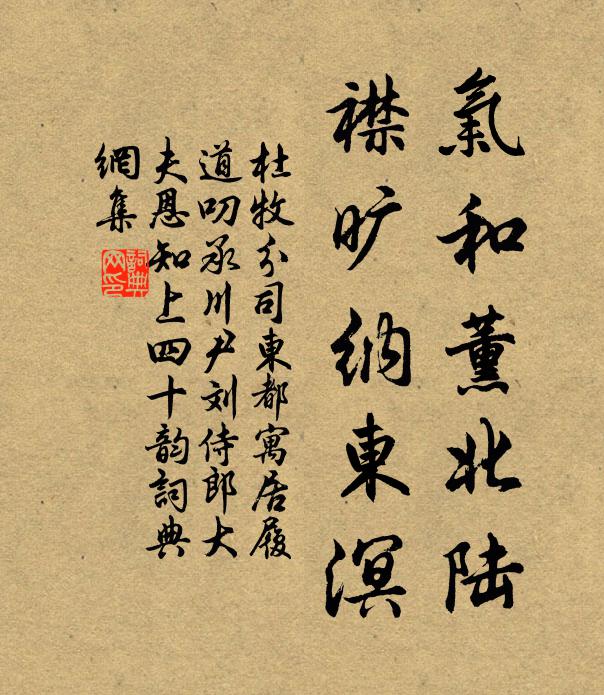 氣和薰北陆
襟旷纳東溟
杜牧分司東都寓居履
道叨承川尹刘侍郎大
夫恩知上四十韵詞典
網集
詞典
网印